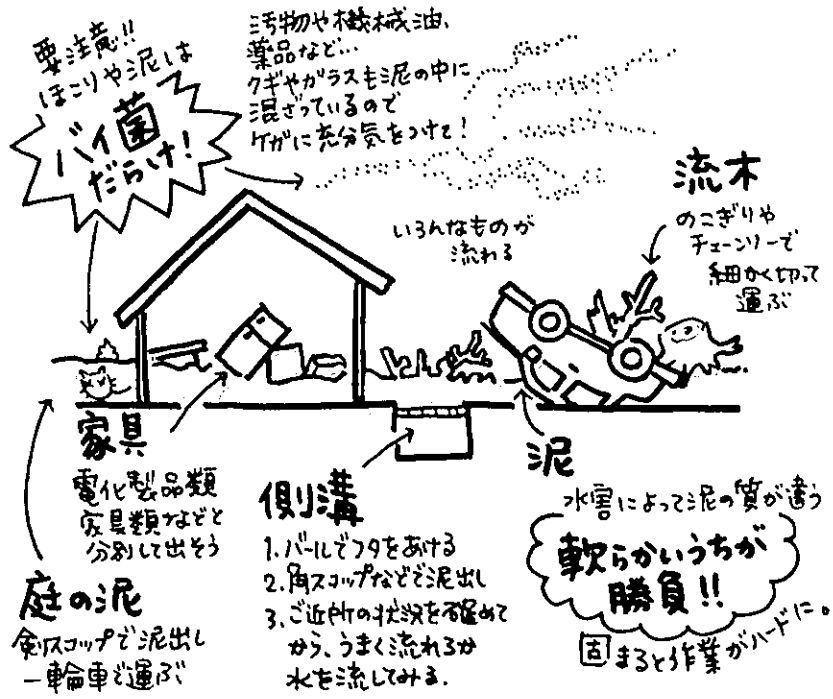 要注意!!
ほこりや泥は
バイ菌
だらけ!
汚物や機械油、
薬品など…
クギやガラスも泥の中に
混ざっているので
ケガに充分気をつけて!
いろんなものが
流れる
流木
のこぎりや
チェーンソーで
細かく切って
運ぶ
家具
電化製品類
家具類などと
分別して出そう
庭の泥
剣スコップで泥出し
一輪車で運ぶ
側溝
1.バールでフタをあける
2.角スコップなどで泥出し
3.ご近所の状況を確めて
から、うまく流れるか
水を流してみる.
泥
水害によって泥の質が違う
軟らかいうちが
勝負!!
固まると作業がハードに。